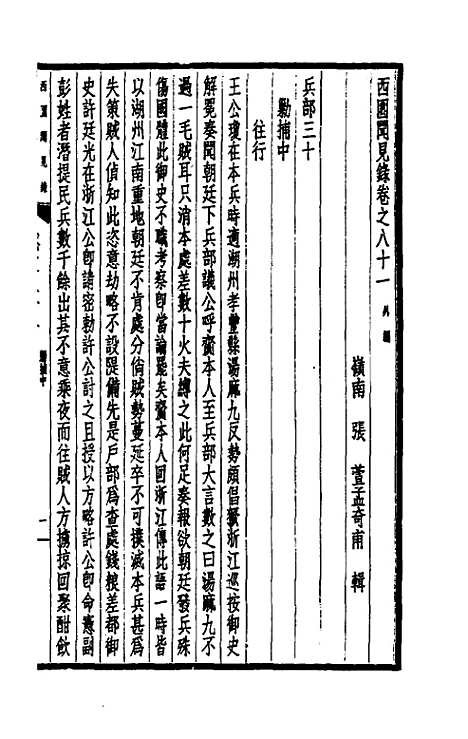 西園聞見錄卷之八十一 外編
嶺南 張 萱孟奇甫 輯
兵部三十
勦捕中
往行
王公瓊在本兵時適湖州孝豐縣湯麻九反勢頗倡獗浙江巡按御史
解冕奏聞朝廷下兵部議公呼齎本人至兵部大言數之曰湯麻九不
過一毛賊耳只消本處差數十火夫縛之此何足奏報欲朝廷發兵殊
傷國體此御史不職考察卽當論罷矣齎本人回浙江傳此語一時皆
以湖州江南重地朝廷不肯處分倘賊勢蔓延卒不可撲滅本兵甚爲
失策賊人偵知此恣意劫略不設隄備先是戶部爲查處錢粮差都御
史許廷光在浙江公卽請密勅許公討之且授以方略許公卽命憲副
彭姓者潛提民兵數千餘出其不意乘夜而往賊人方擄掠回聚酣飲
西園聞見錄
勦捕中
一